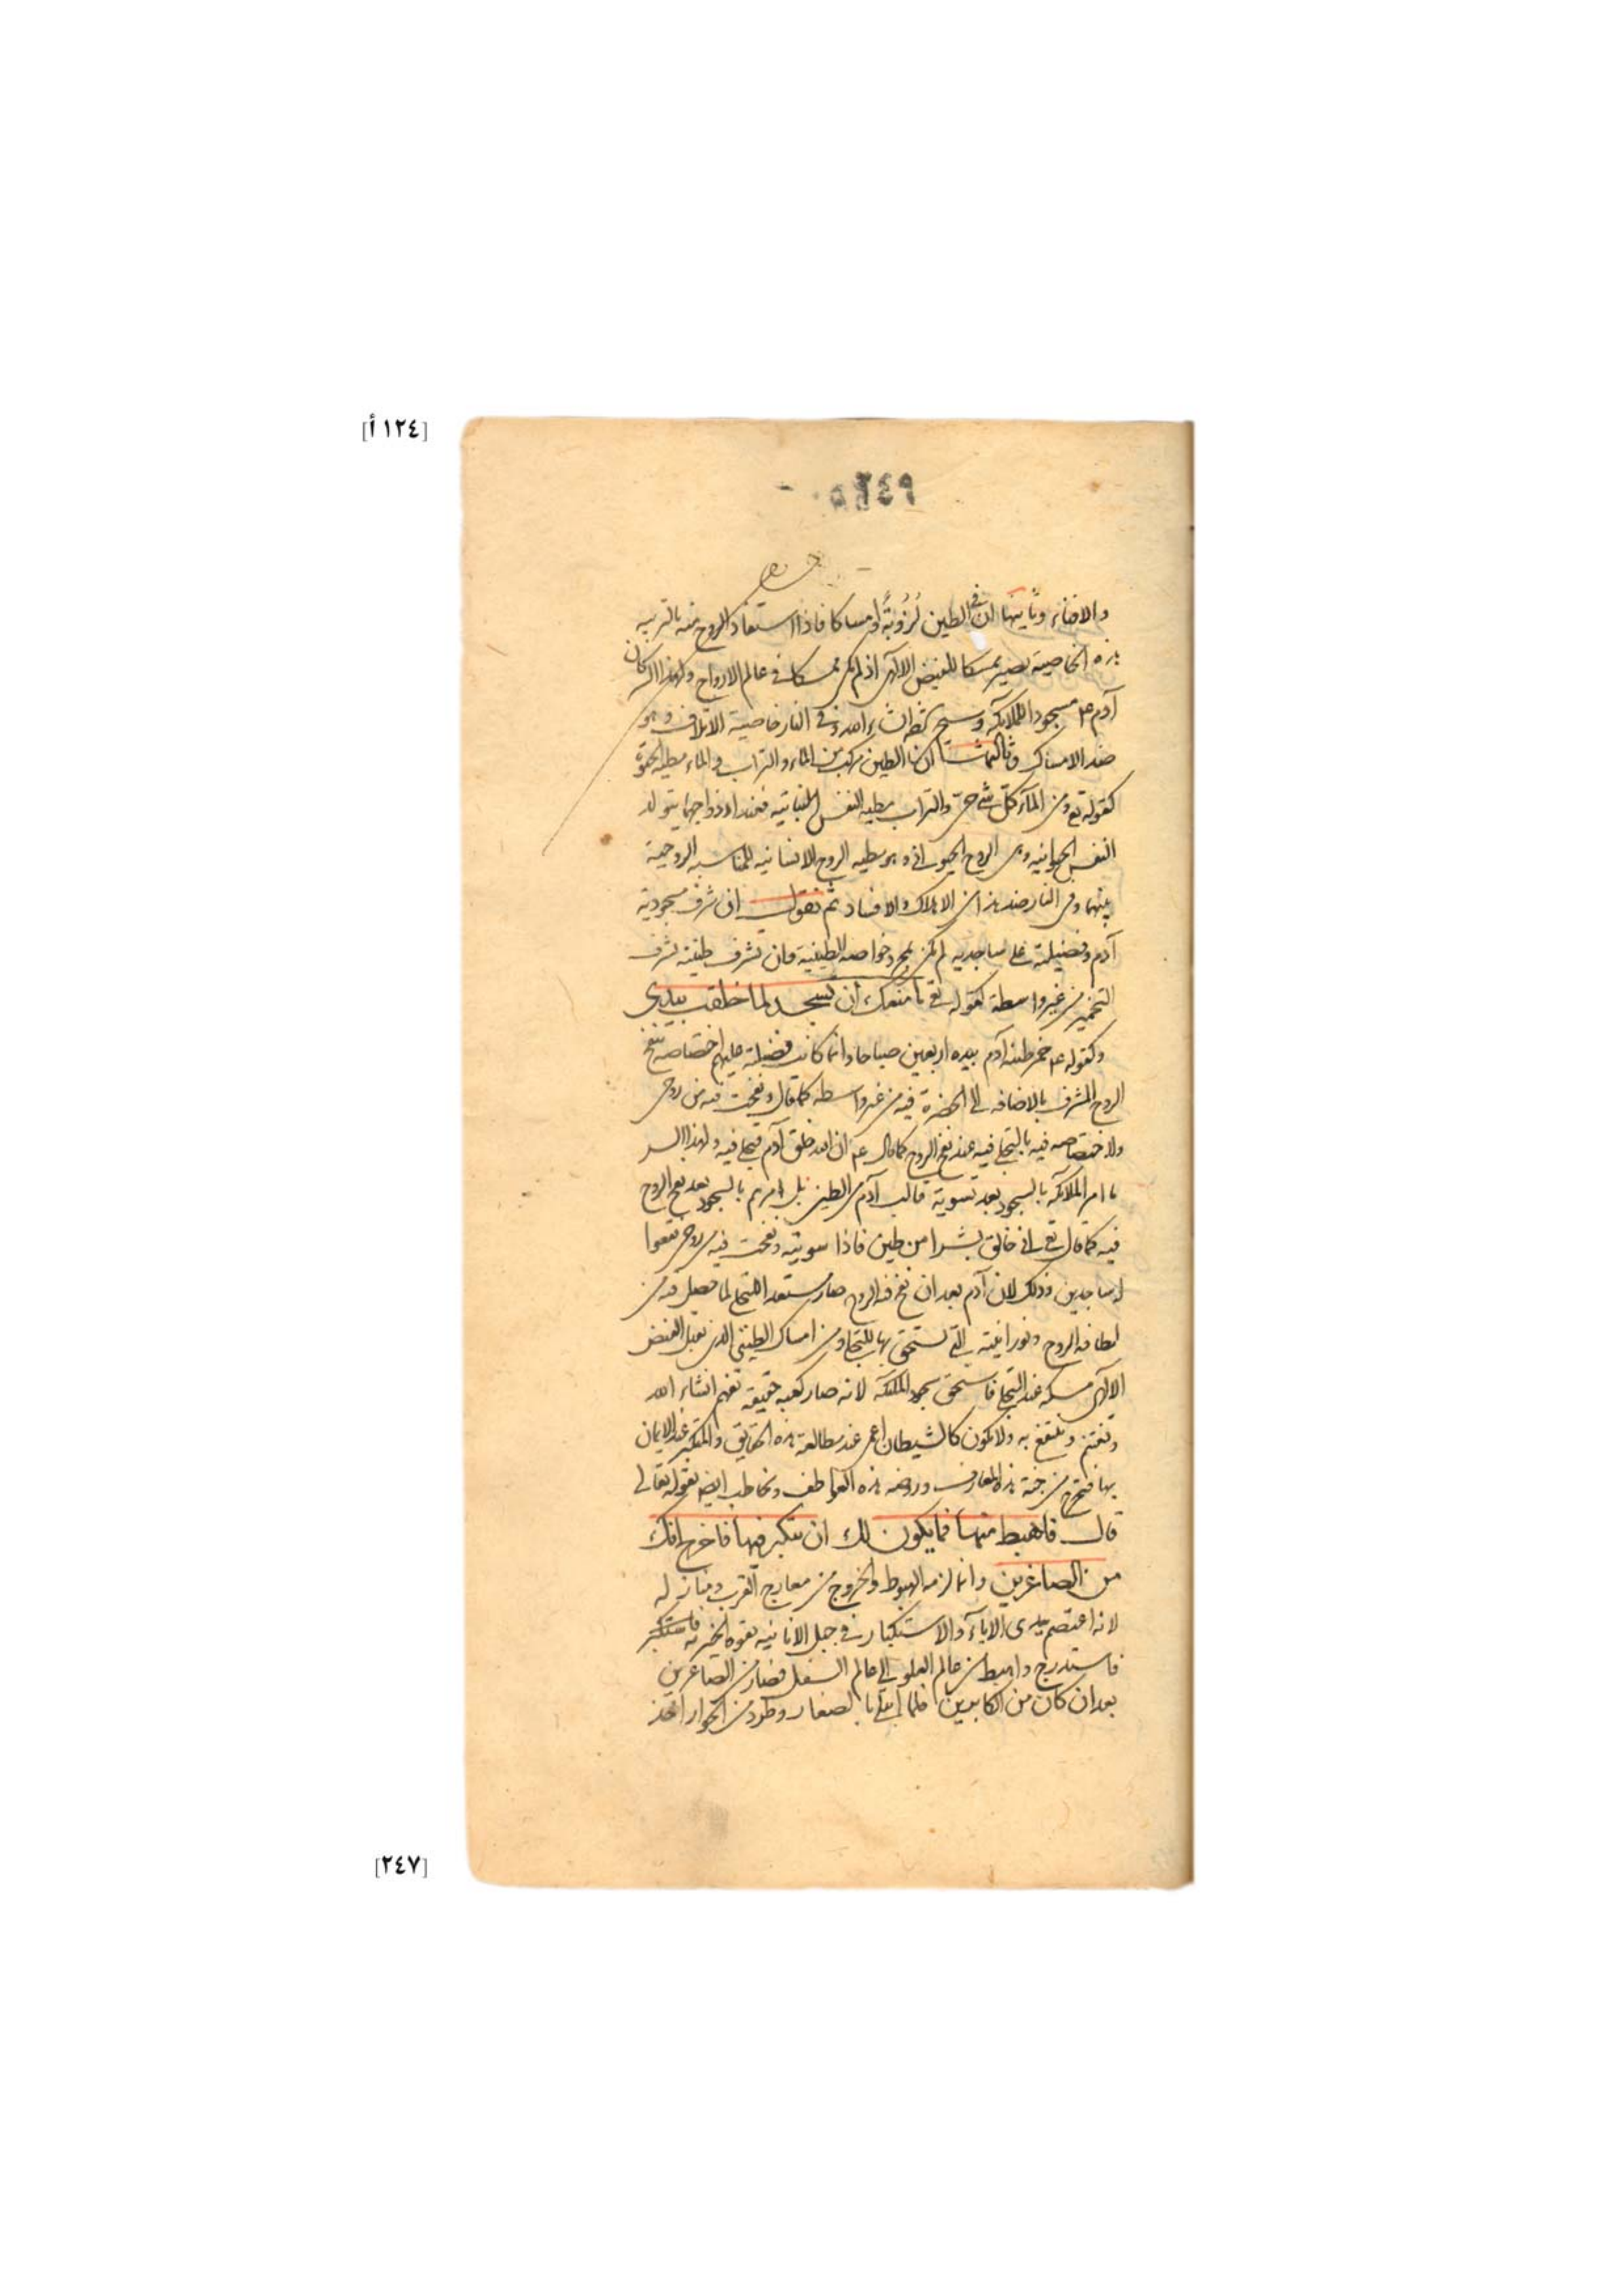 [١٢٤ أ]
والافناء وثانيها ان في الطين لزوبةً وامساكا فاذا استفاد الروح منه بالتربية
هذه الخاصية يصير ممسكا للفيض الالهى اذ لم يكن ممسكا في عالم الارواح ولهذا السر كان
آدم عم مسجودا للملائكة وسيجئ شرحه ان شاء الله وفي النار خاصية الاتلاف وهو
ضد الامساك وثالثها ان الطين مركب من الماء والتراب والماء مطية الحيوة
كقوله تع ومن المآء كل شئ حى والتراب مطية النفس النباتية فعند ازدواجهما يتولد
النفس الحيوانية وهى الروح الحيوانى وهو مطية الروح الانسانية للمناسبة الروحية
بينهما وفى النار ضد هذا من الاهلاك والافساد ثم نقول ان شرف مسجودية
آدم وفضيلته على ساجديه لم يكن بمجرد خواصه الطينية فان تشرف طينته بشرف
التخمير من غير واسطة كقوله تع ما منعك ان تسجد لما خلقت بيدى
وكقوله عم خمر طينة آدم بيده اربعين صباحا وانما كانت فضيلته عليهم اختصاصه بنفخ
الروح المشرف بالاضافه الى الحضرة فيه من غير واسطه كما قال ونفخت فيه من روحى
ولاختصاصه فيه بالتجلى فيه عند نفخ الروح كما قال عم ان الله خلق آدم فتجلى فيه ولهذا السر
ما امر الملائكه بالسجود بعد تسوية قالب آدم من الطين بل امرهم بالسجود بعد نفخ الروح
فيه كما قال تع انى خالق بشرا من طين فاذا سويته ونفخت فيه من روحى فقعوا
له ساجدين وذلك لان آدم بعد ان نفخ فيه الروح صار مستعدا للتجلى لما حصل فيه من
لطافة الروح ونورانيته التى تستحق بها للتجلى ومن امساك الطين الذى يقبل الفيض
الالهى فيمسكه عند التجلى فاستحق سجود الملئكة لانه صار كعبة حقيقة تفهم انشاء الله
وتغتنم وتنتفع به ولا تكون كالشيطان اعمى عند مطالعة هذه الحقايق والمتكبر عند الايمان
بها فتخرج من جنة هذه المعارف وروضة هذه العواطف وتخاطب ايضا بقوله تعالى
قال فاهبط منها فما يكون لك ان تتكبر فيها فاخرج انك
من الصاغرين وانما لزمه الهبوط والخروج من معارج القرب ومنازله
لانه اعتصم بيدى الاباء والاستكبار في حبل الانانية بقوة الخيرية فاستكبر
فاستدرج واهبط من عالم العلو الى عالم السفل فصار من الصاغرين
بعد ان كان من الكابرين فلما ابتلى بالصغار وطرد من الجوار اخذ
[٢٤٧]